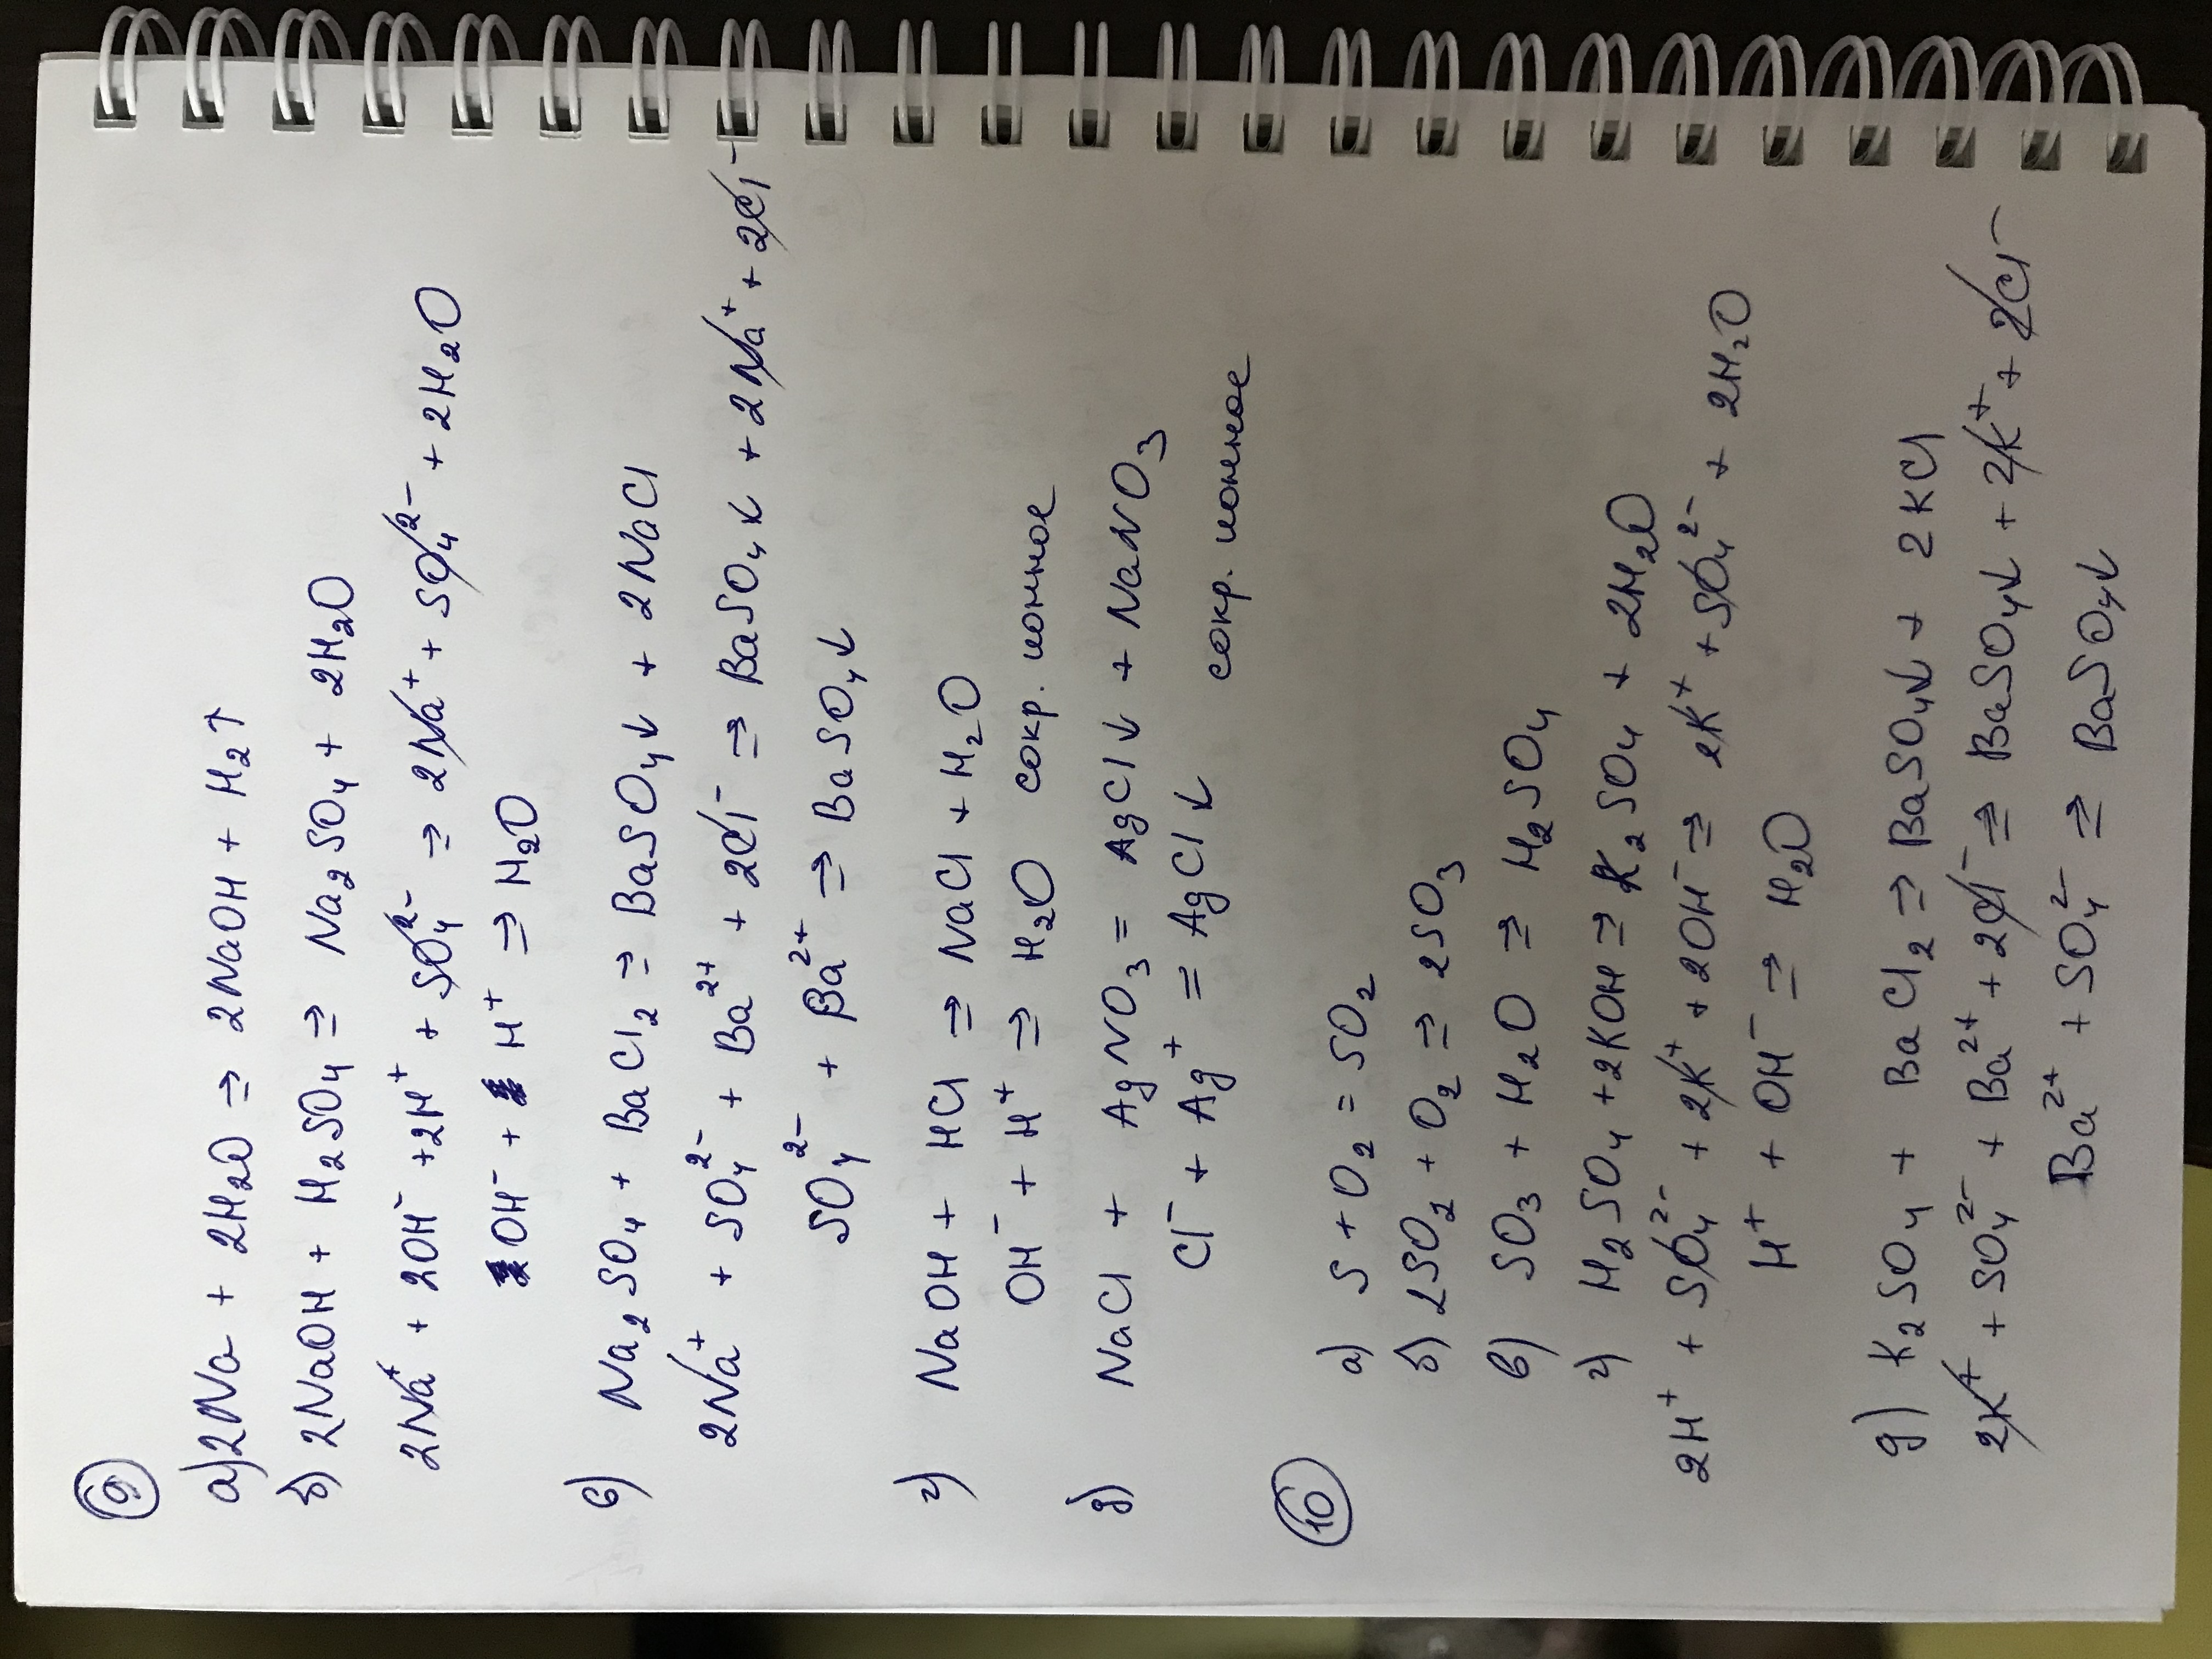 9
а) 2Na + 2H₂O ⇒ 2NaOH + H₂↑
б) 2NaOH + H₂SO₄ ⇒ Na₂SO₄ + 2H₂O
2Na⁺ + 2OH⁻ + 2H⁺ + SO₄²⁻ ⇒ 2Na⁺ + SO₄²⁻ + 2H₂O
OH⁻ + H⁺ ⇒ H₂O
в) Na₂SO₄ + BaCl₂ ⇒ BaSO₄↓ + 2NaCl
2Na⁺ + SO₄²⁻ + Ba²⁺ + 2Cl⁻ ⇒ BaSO₄↓ + 2Na⁺ + 2Cl⁻
SO₄²⁻ + Ba²⁺ ⇒ BaSO₄↓
г) NaOH + HCl ⇒ NaCl + H₂O
OH⁻ + H⁺ ⇒ H₂O сокр. ионное
д) NaCl + AgNO₃ = AgCl↓ + NaNO₃
Cl⁻ + Ag⁺ = AgCl↓ сокр. ионное
10
а) S + O₂ = SO₂
б) 2SO₂ + O₂ ⇒ 2SO₃
в) SO₃ + H₂O ⇒ H₂SO₄
г) H₂SO₄ + 2KOH ⇒ K₂SO₄ + 2H₂O
2H⁺ + SO₄²⁻ + 2K⁺ + 2OH⁻ ⇒ 2K⁺ + SO₄²⁻ + 2H₂O
H⁺ + OH⁻ ⇒ H₂O
д) K₂SO₄ + BaCl₂ ⇒ BaSO₄↓ + 2KCl
2K⁺ + SO₄²⁻ + Ba²⁺ + 2Cl⁻ ⇒ BaSO₄↓ + 2K⁺ + 2Cl⁻
Ba²⁺ + SO₄²⁻ ⇒ BaSO₄↓